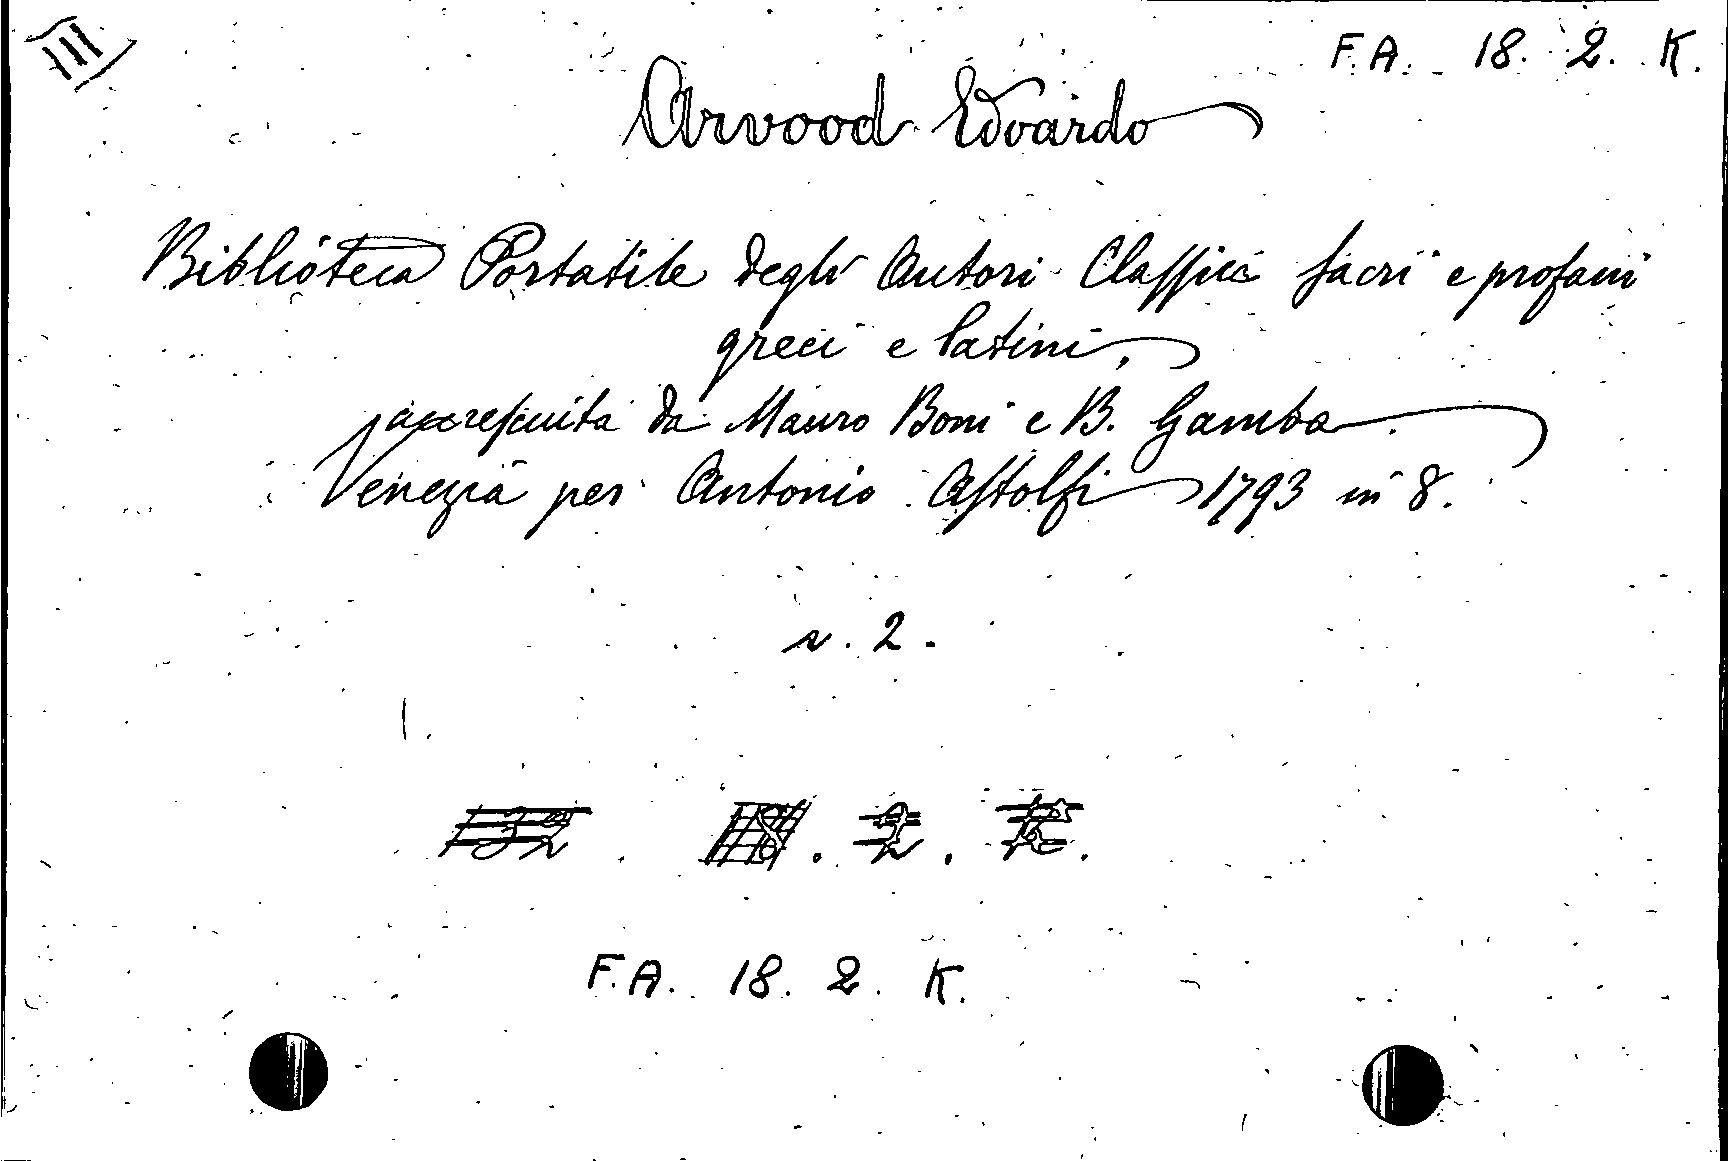 III
F. A. 18. 2. K.
Arvood Edoardo
Biblioteca Portatile degli Autori Classici sacri e profani
greci e latini,
accresciuita da Mauro Boni e B. Gamba
Venezia per Antonio Astolfi 1793 in 8.
v. 2.
18. 2. K.
F. A. 18. 2. K.